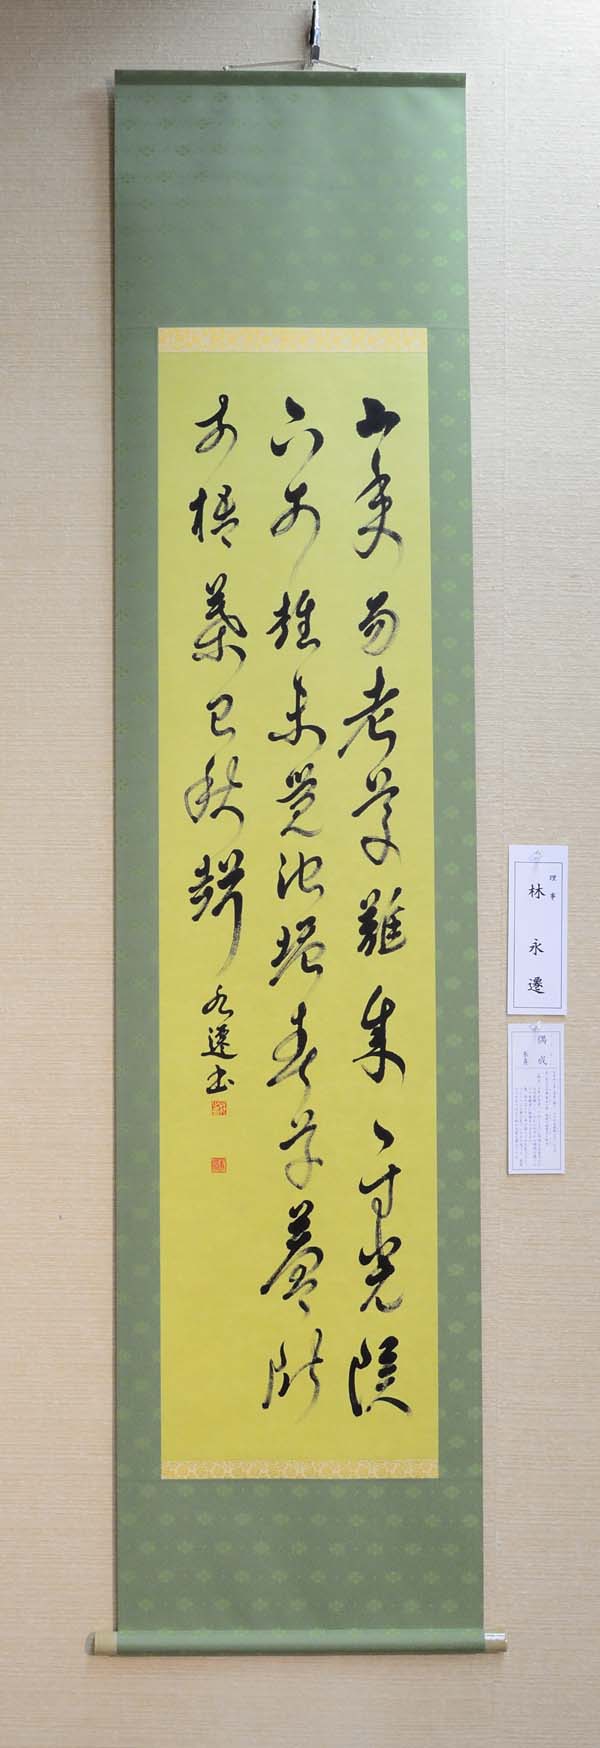 少年易老学難成一寸光陰
不可軽未覚池塘春草夢階
前梧葉已秋声 永遷書
理事
林 永遷
偶成